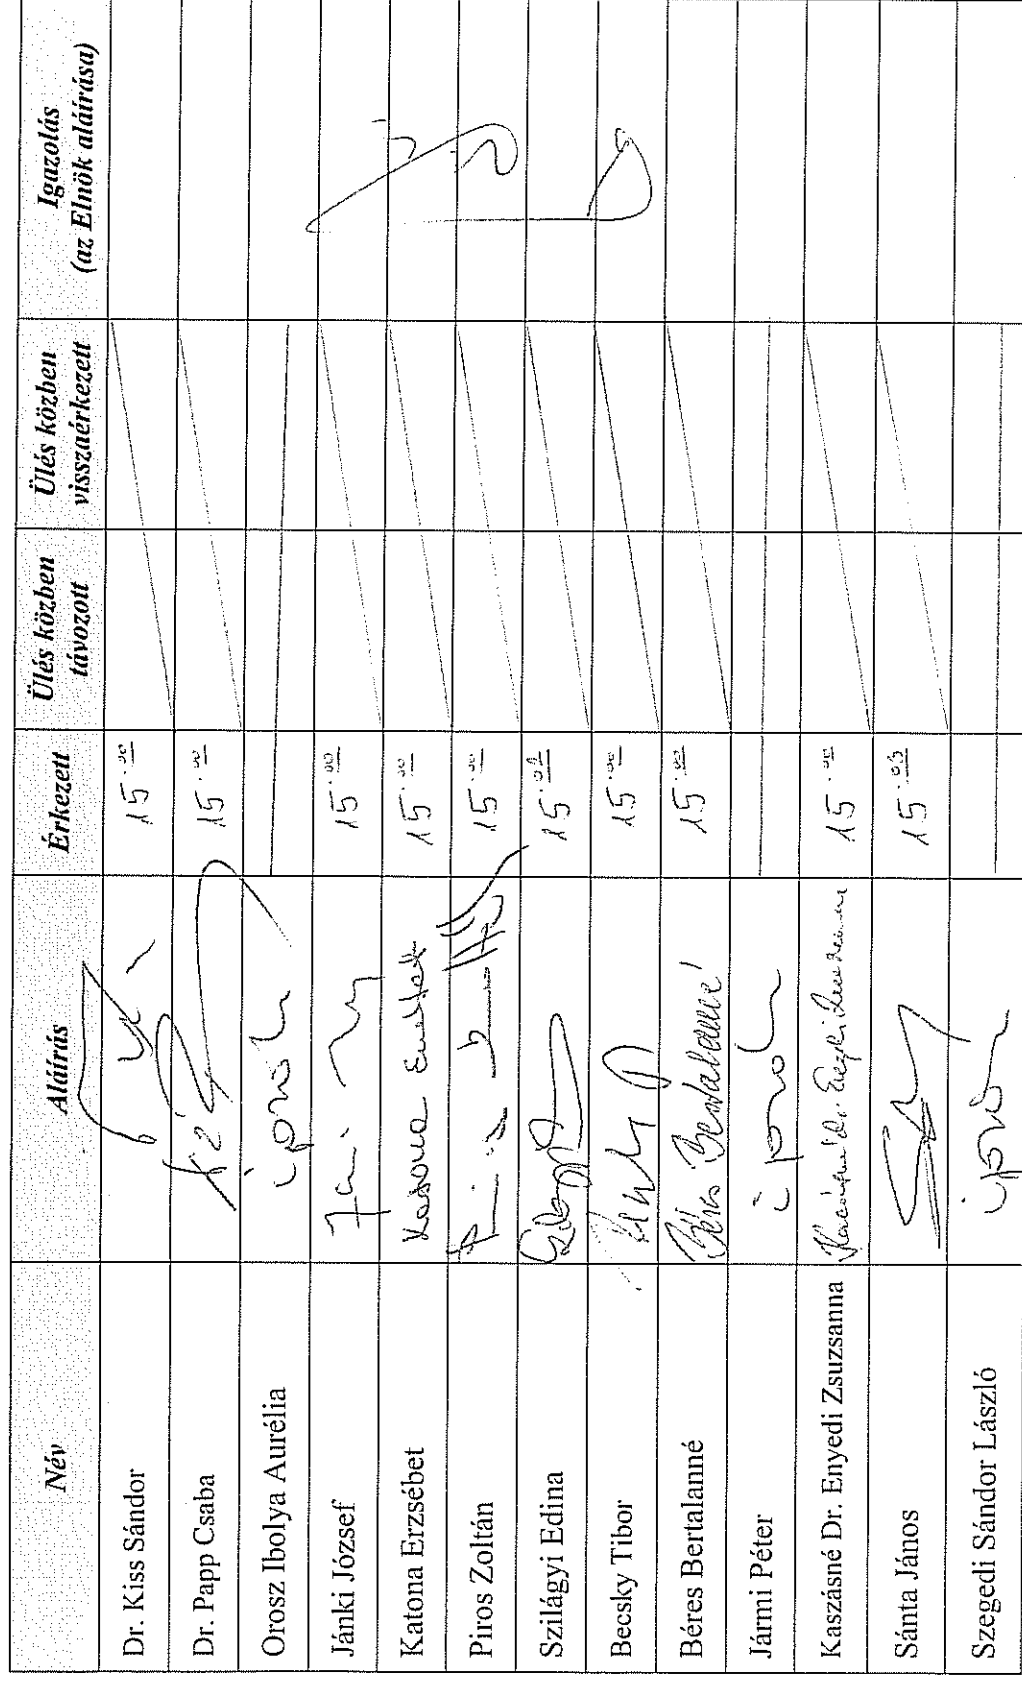 Név Aláírás Érkezett Ülés közben távozott Ülés közben visszaérkezett Igazolás (az Elnök aláírása)
Dr. Kiss Sándor 15.00
Dr. Papp Csaba 15.00
Orosz Ibolya Aurélia
Jánki József 15.00
Katona Erzsébet Katona Erzsébet 15.00
Piros Zoltán 15.00
Szilágyi Edina 15.01
Becsky Tibor 15.00
Béres Bertalanné Béres Bertalanné 15.00
Jármi Péter
Kaszásné Dr. Enyedi Zsuzsanna 15.00
Sánta János 15.03
Szegedi Sándor László